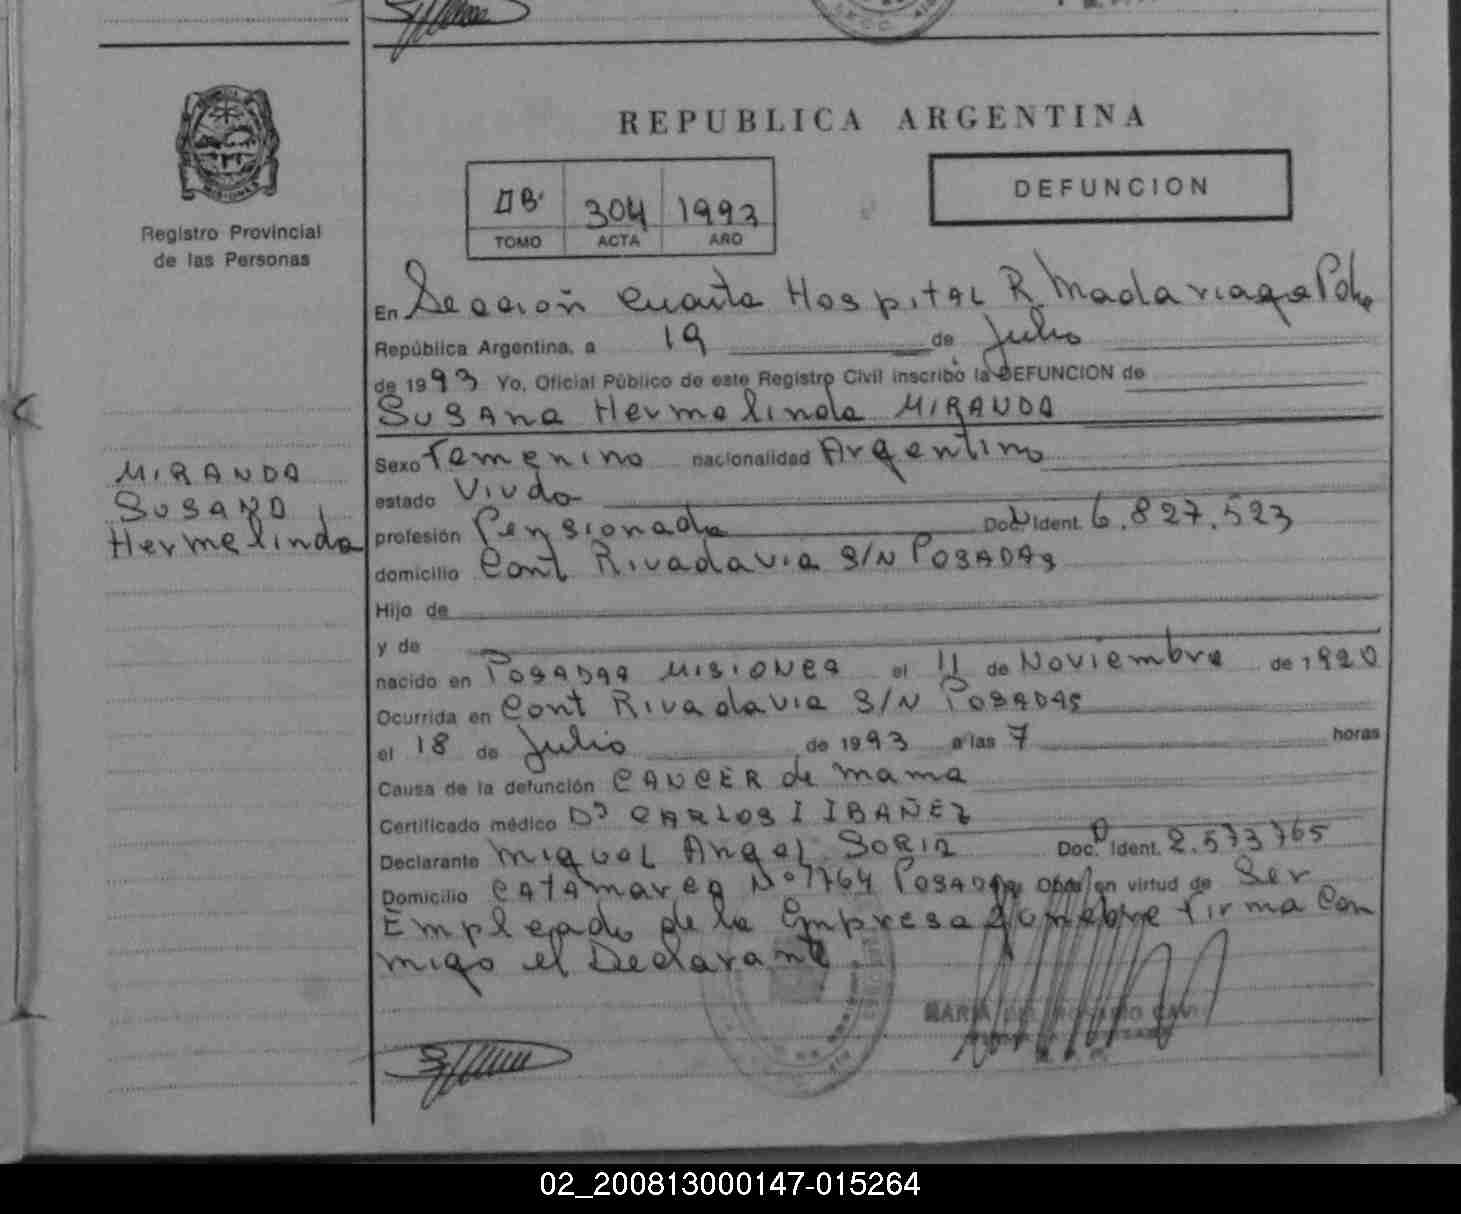 REPUBLICA ARGENTINA
DEFUNCION
II B. 304 1993
TOMO ACTA AÑO
Registro Provincial
de las Personas
MIRANDA
SUSANA
Hermelinda
En Sección Cuarta Hospital R. Madariaga Pdas
República Argentina, a 19 de Julio
de 1993 Yo, Oficial Público de este Registro Civil inscribo la DEFUNCION de
SUSANA Hermelinda MIRANDA
Sexo Femenino nacionalidad Argentina
estado Viuda
profesión Pensionada Doc. Ident. 6.827.523
domicilio Cont Rivadavia S/N POSADAS
Hijo de
y de
nacido en POSADAS MISIONES el 11 de Noviembre de 1920
Ocurrida en Cont Rivadavia S/N POSADAS
el 18 de Julio de 1993 a las 7 horas
Causa de la defunción CANCER de mama
Certificado médico Dr CARLOS I IBAÑEZ
Declarante Miguel Angel SORIA Doc. Ident. 2.573765
Domicilio CATAMARCA Nº 1764 POSADAS Obra en virtud de Ser
Empleado de la Empresa funebre firma Con
migo el Declarante.
MARIA DEL ROSARIO
02_200813000147-015264